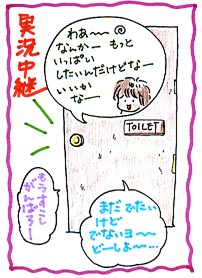 実況中継
わあ〜〜
なんかー もっと
いっぱい
したいんだけどなー
いいか
なー
TOILET
もうすこし
がんばろー
まだ でたい
けど
でないヨ〜〜
どーしよ〜…